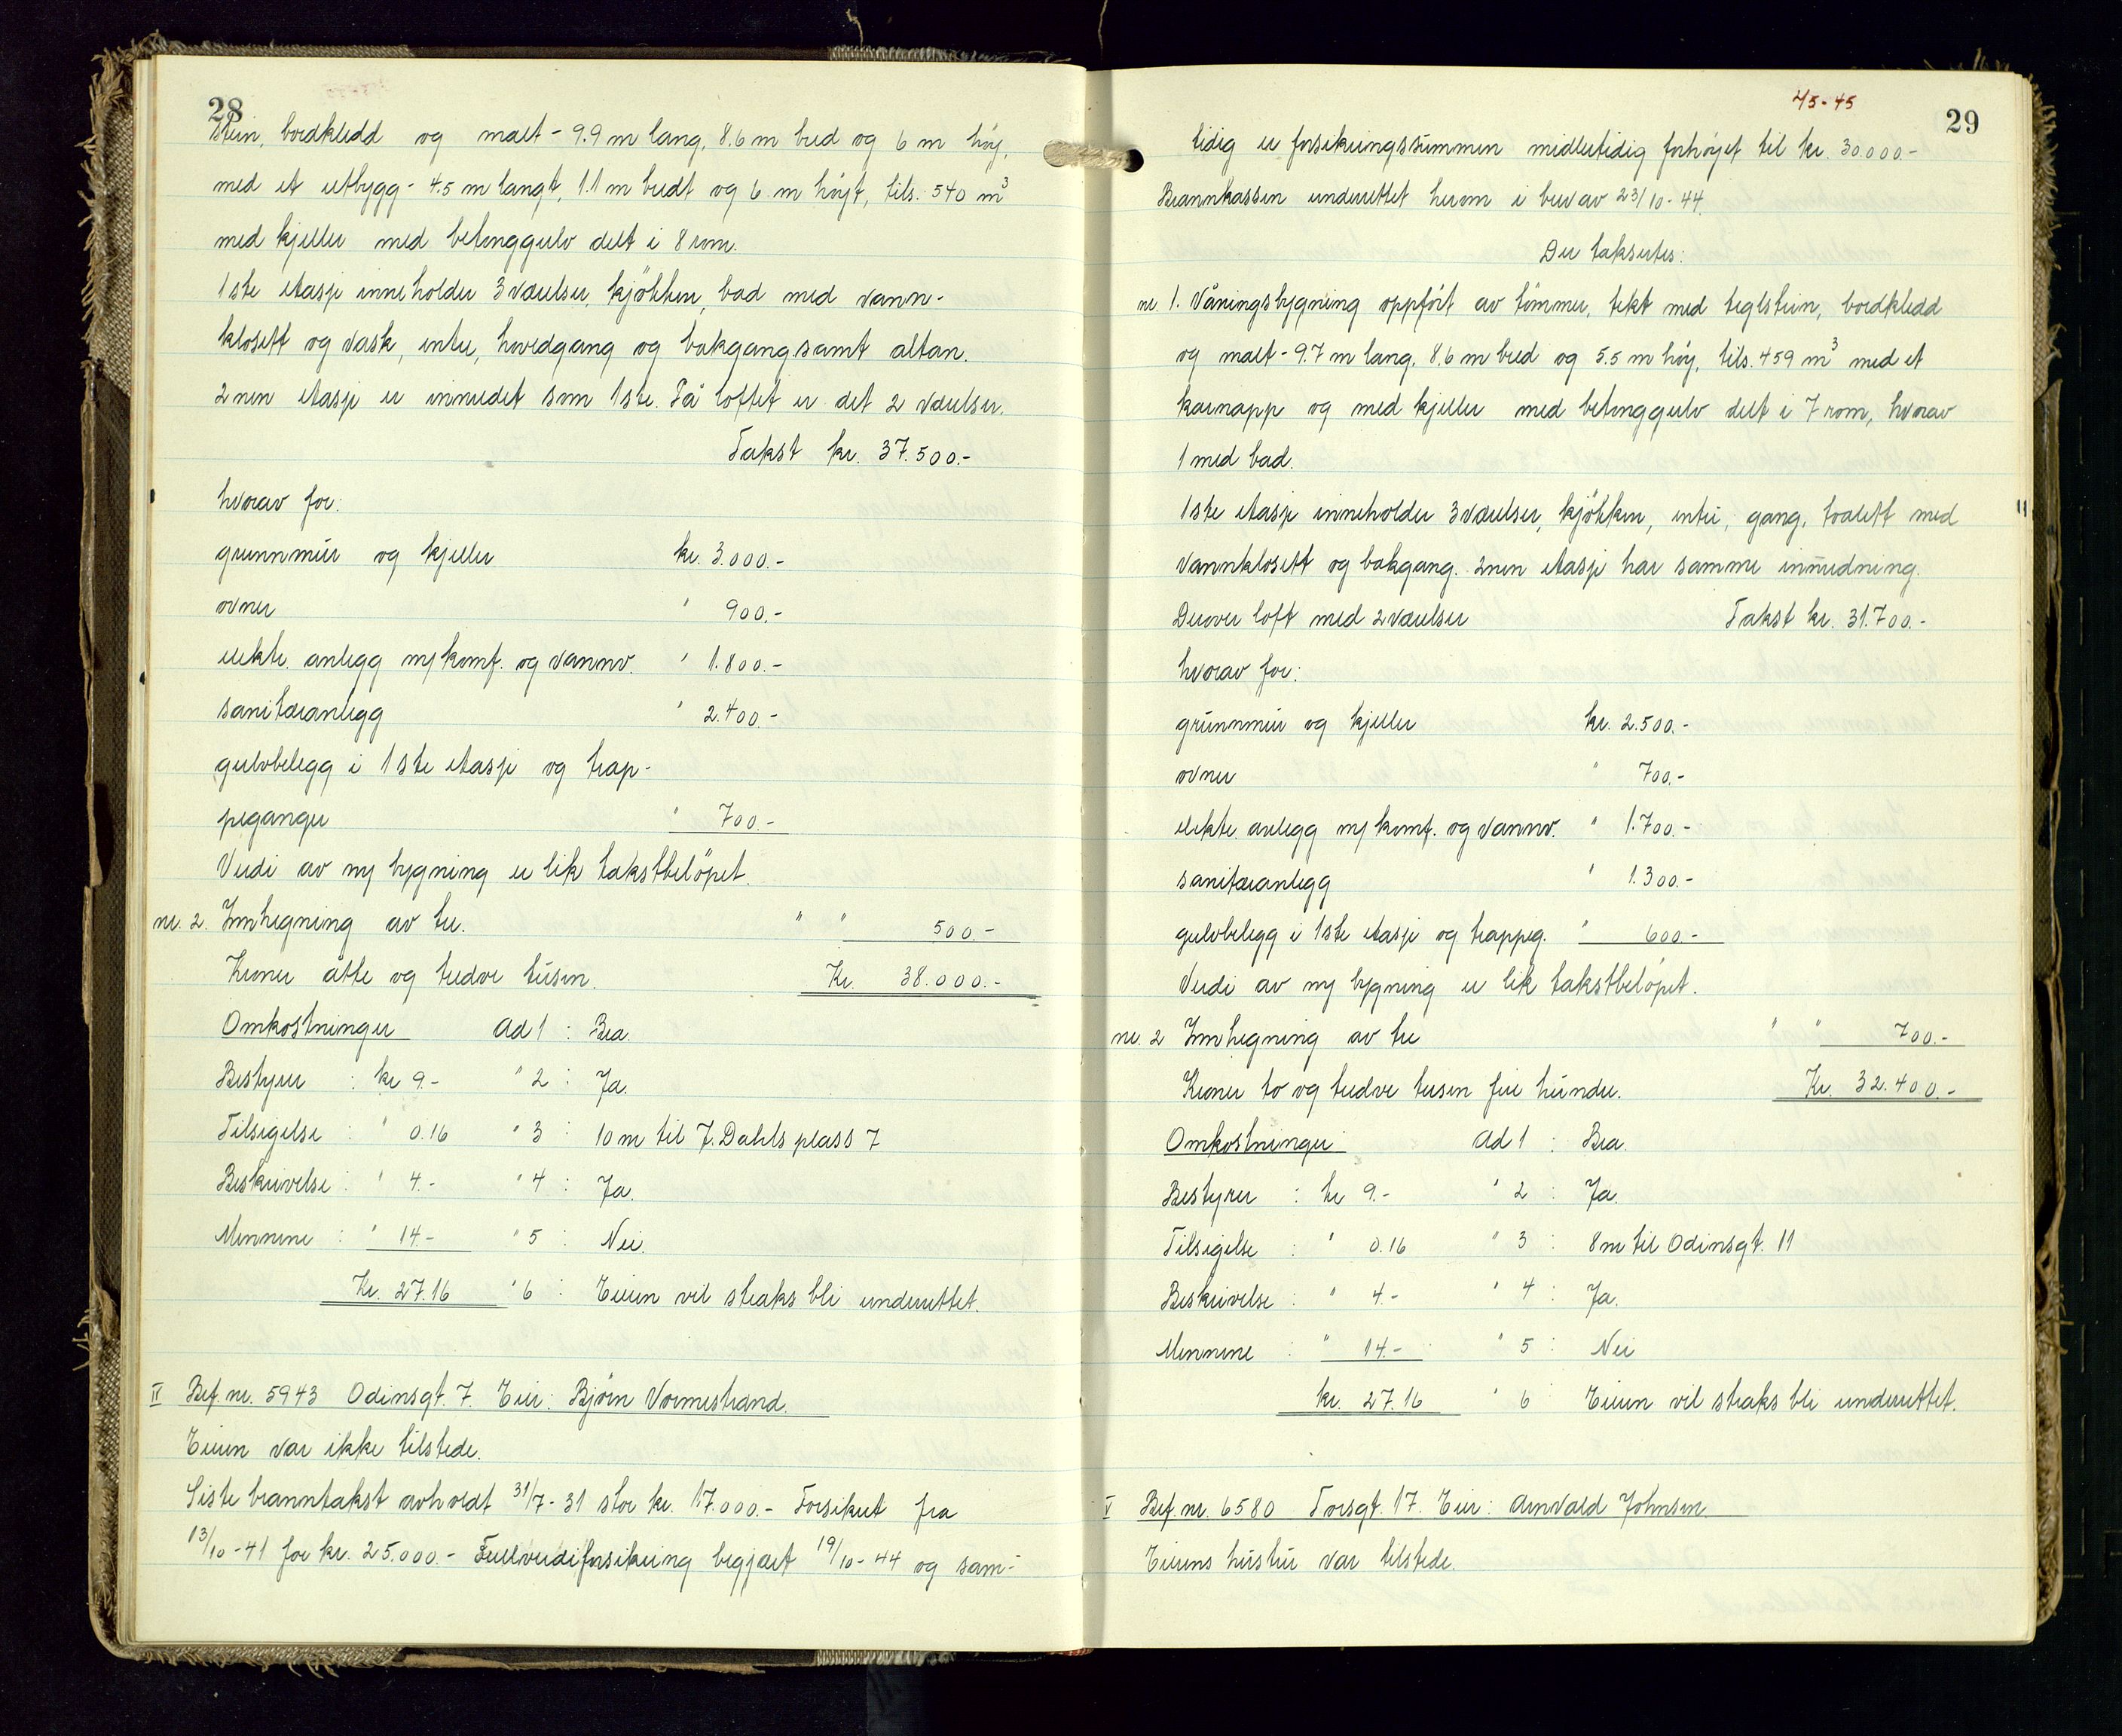 28
stein, bordkledd og malt - 9.9 m lang, 8.6 m bred og 6 m høy,
med et utbygg - 4.5 m langt, 1.1 m bredt og 6 m høyt, tils. 540 m³
med kjeller med betonggulv delt i 8 rom.
1ste etasje inneholder 3 værelser, kjökken, bad med vann-
klosett og vask, entre, hovedgang og bakgang samt altan.
2nen etasje er innredet som 1ste. På loftet er det 2 værelser.
Takst kr. 37.500.-
hvorav for:
grunnmur og kjeller kr. 3.000.-
ovner " 900.-
elektr. anlegg m/komf. og vannv. " 1.800.-
sanitæranlegg " 2.400.-
gulvbelegg i 1ste etasje og trap-
peganger " 700.-
Verdi av ny bygning er lik takstbelöpet.
nr. 2. Innhegning av tre. " " 500.-
Kroner åtte og tredve tusen. Kr. 38.000.-
Omkostninger Ad 1 : Bra.
Bestyrer : kr 9.- " 2 : Ja.
Tilsigelse : " 0.16 " 3 : 10 m til J. Dahls plass 7
Beskrivelse : " 4.- " 4 : Ja.
Mennene : " 14.- " 5 : Nei.
Kr. 27.16 " 6 : Eieren vil straks bli underrettet.
IV Bef. nr. 5943 Odinsgt. 7. Eier: Bjørn Vormestrand.
Eieren var ikke tilstede.
Siste branntakst avholdt 31/7-31 stor kr. 17.000.- Forsikret fra
13/10-41 for kr. 25.000.- Fullverdiforsikring begjært 19/10-44 og sam-
45-45
29
tidig er forsikringssummen midlertidig forhøyet til kr. 30.000.-
Brannkassen underrettet herom i brev av 23/10-44.
Der takseres:
nr. 1. Våningsbygning oppført av tömmer, tekt med teglstein, bordkledd
og malt - 9.7 m lang, 8.6 m bred og 5.5 m høy, tils. 459 m³ med et
karnapp og med kjeller med betonggulv delt i 7 rom, hvorav
1 med bad.
1ste etasje inneholder 3 værelser, kjökken, entre, gang, toalett med
vannklosett og bakgang. 2nen etasje har samme innredning.
Derover loft med 2 værelser Takst kr. 31.700.-
hvorav for:
grunnmur og kjeller kr. 2.500.-
ovner " 700.-
elektr. anlegg m/komf. og vannv. " 1.700.-
sanitæranlegg " 1.300.-
gulvbelegg i 1ste etasje og trappeg. " 600.-
Verdi av ny bygning er lik takstbelöpet.
nr. 2 Innhegning av tre " " 700.-
Kroner to og tredve tusen fire hundre. Kr. 32.400.-
Omkostninger Ad 1 : Bra.
Bestyrer : kr 9.- " 2 : Ja.
Tilsigelse : " 0.16 " 3 : 8 m til Odinsgt. 11
Beskrivelse : " 4.- " 4 : Ja.
Mennene : " 14.- " 5 : Nei
kr. 27.16 " 6 Eieren vil straks bli underrettet.
V Bef. nr. 6580 Torsgt. 17. Eier: Arnvald Johnsen.
Eierens hustru var tilstede.